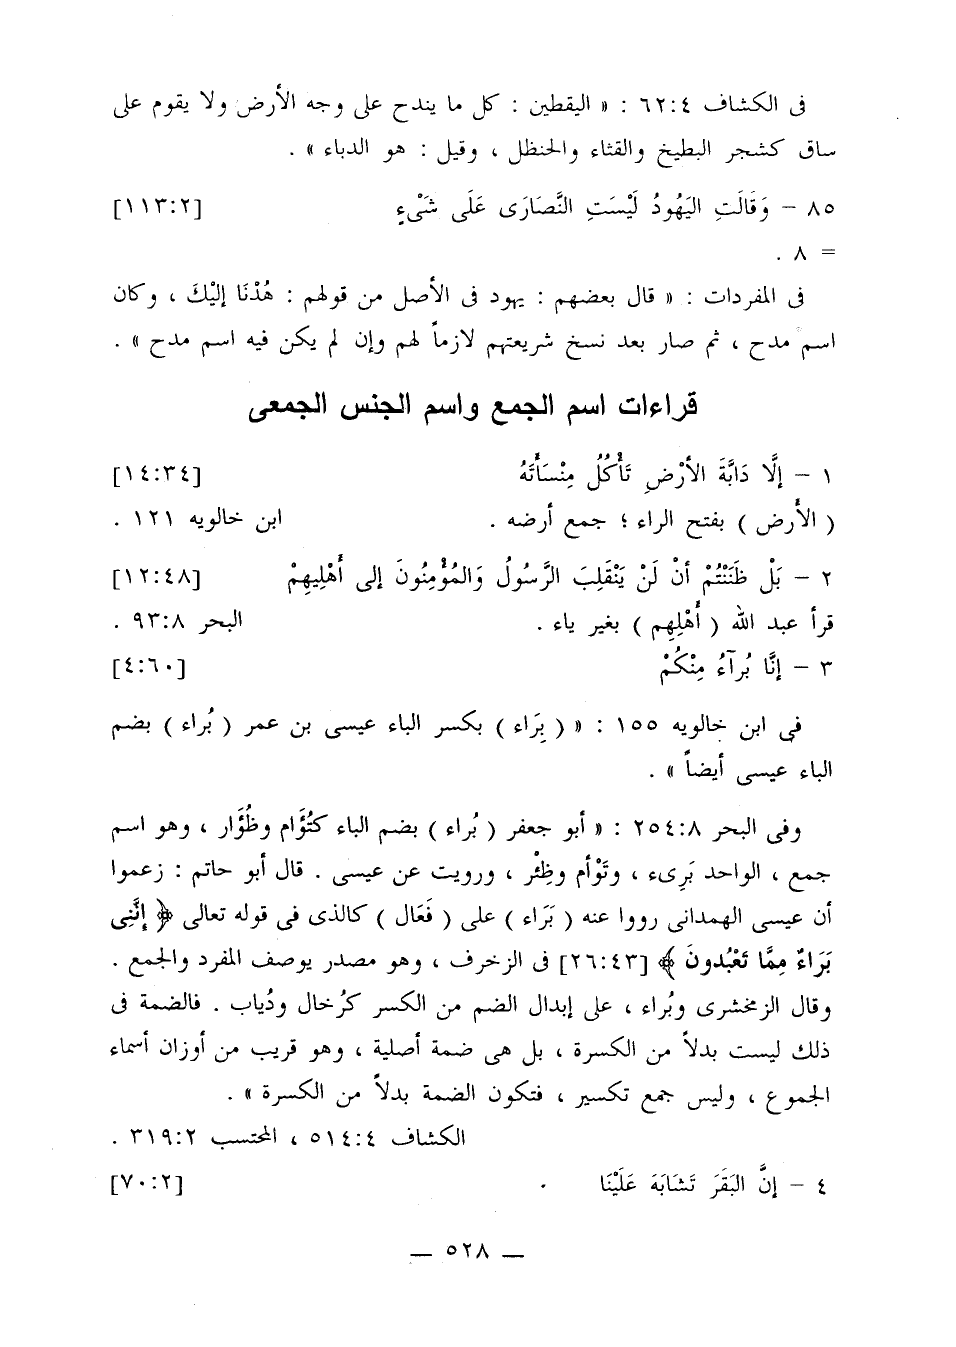 فى الكشاف ٦٢:٤ : « اليقطين : كل ما يندح على وجه الأرض ولا يقوم على
ساق كشجر البطيخ والقثاء والحنظل ، وقيل : هو الدباء » .
٨٥ – وَقَالَتِ اليَهُودُ لَيْسَتِ النَّصَارَى عَلَى شَىْءٍ [١١٣:٢]
= ٨ .
فى المفردات : « قال بعضهم : يهود فى الأصل من قولهم : هُدْنَا إليْكَ ، وكان
اسم مدح ، ثم صار بعد نسخ شريعتهم لازماً لهم وإن لم يكن فيه اسم مدح » .
قراءات اسم الجمع واسم الجنس الجمعى
١ – إلَّا دَابَّةَ الأرْضِ تَأْكُلُ مِنْسَأَتَهُ [١٤:٣٤]
( الأَرض ) بفتح الراء ؛ جمع أرضه . ابن خالويه ١٢١ .
٢ – بَلْ ظَنَنْتُمْ أنْ لَنْ يَنْقَلِبَ الرَّسُولُ وَالمُؤْمِنُونَ إلى أَهْلِيهِمْ [١٢:٤٨]
قرأ عبد الله ( أَهْلِهِم ) بغير ياء . البحر ٩٣:٨ .
٣ – إنَّا بُرآءُ مِنْكُمْ [٤:٦٠]
فى ابن خالويه ١٥٥ : « ( بِرَاء ) بكسر الباء عيسى بن عمر ( بُراء ) بضم
الباء عيسى أيضاً » .
وفى البحر ٢٥٤:٨ : « أبو جعفر ( بُراء ) بضم الباء كتُؤَام وظُؤَار ، وهو اسم
جمع ، الواحد بَرِىء ، وتَوْأم وظِئْر ، ورويت عن عيسى . قال أبو حاتم : زعموا
أن عيسى الهمدانى رووا عنه ( بَرَاء ) على ( فَعَال ) كالذى فى قوله تعالى ﴿ إنَّنِى
بَرَاءٌ مِمَّا تَعْبُدونَ ﴾ [٢٦:٤٣] فى الزخرف ، وهو مصدر يوصف المفرد والجمع .
وقال الزمخشرى وبُراء ، على إبدال الضم من الكسر كرُخال ودُياب . فالضمة فى
ذلك ليست بدلاً من الكسرة ، بل هى ضمة أصلية ، وهو قريب من أوزان أسماء
الجموع ، وليس جمع تكسير ، فتكون الضمة بدلاً من الكسرة » .
الكشاف ٥١٤:٤ ، المحتسب ٣١٩:٢ .
٤ – إنَّ البَقَرَ تَشَابَهَ عَلَيْنَا . [٧٠:٢]
— ٥٢٨ —